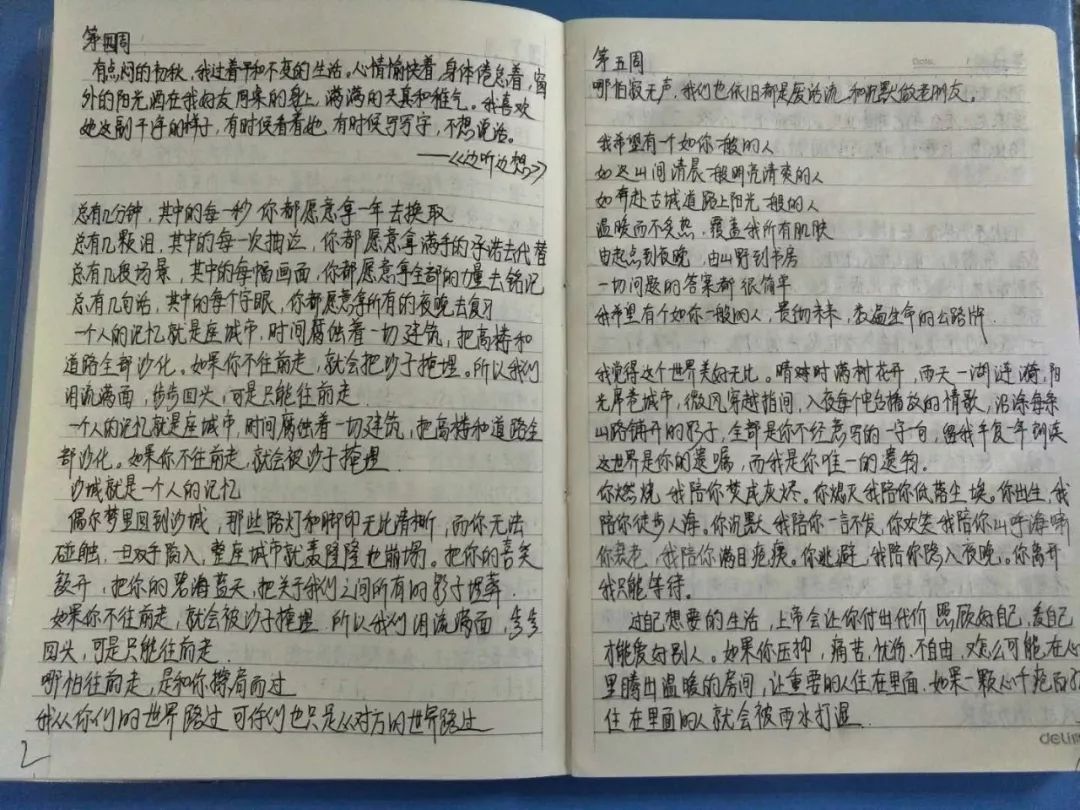 第四周
有点闷的初秋，我过着平和不变的生活。心情愉快着，身体倦怠着，窗
外的阳光洒在我的友周来的身上，满满的天真和稚气。我喜欢
她这副干净的样子，有时候看着她，有时候写写字，不想说话。
——《边听边想》
总有几分钟，其中的每一秒你都愿意拿一年去换取
总有几颗泪，其中的每一次抽泣，你都愿意拿满手的承诺去代替
总有几段场景，其中的每幅画面，你都愿意拿全部的力量去铭记
总有几句话，其中的每个字眼，你都愿意拿所有的夜晚去复习
一个人的记忆就是座城市，时间腐蚀着一切建筑，把高楼和
道路全部沙化。如果你不往前走，就会把沙子掩埋。所以我们
泪流满面，步步回头，可是只能往前走
一个人的记忆就是座城市，时间腐蚀着一切建筑，把高楼和道路全
部沙化。如果你不往前走，就会被沙子掩埋
沙城就是一个人的记忆
偶尔梦里回到沙城，那些路灯和脚印无比清晰，而你无法
碰触，一旦双手陷入，整座城市就轰隆隆地崩塌。把你的喜笑
颜开，把你的碧海蓝天，把关于我们之间所有的影子埋葬
如果你不往前走，就会被沙子掩埋 所以我们泪流满面，步步
回头，可是只能往前走
哪怕往前走，是和你擦肩而过
我从你们的世界路过 可你们也只是从对方的世界路过
2
第五周
Date.
哪怕寂无声，我们也依旧都是废话流 和沉默做老朋友。
我希望有一个如你一般的人
如这山间清晨一般明亮清爽的人
如奔赴古城道路上阳光一般的人
温暖而不炙热，覆盖我所有肌肤
由起点到夜晚，由山野到书房
一切问题的答案都很简单
我希望有个如你一般的人，贯彻未来，数遍生命的公路牌
我觉得这个世界美好无比。晴时满树花开，雨天一湖涟漪，阳
光席卷城市，微风穿越指间，入夜每个电台播放的情歌，沿途每条
山路铺开的影子，全部是你不经意写的一字一句，留我年复一年朗读
这世界是你的遗嘱，而我是你唯一的遗物。
你燃烧 我陪你焚成灰烬。你熄灭 我陪你低落尘埃。你出生，我
陪你徒步人海。你沉默 我陪你一言不发，你欢笑 我陪你山呼海啸
你衰老，我陪你满目疮痍。你逃避，我陪你隐入夜晚。你离开
我只能等待。
过自己想要的生活，上帝会让你付出代价 照顾好自己，爱自己
才能爱好别人。如果你压抑，痛苦，忧伤，不自由，又怎么可能在心
里腾出温暖的房间，让重要的人住在里面。如果一颗心千疮百孔
住在里面的人就会被雨水打湿
deli